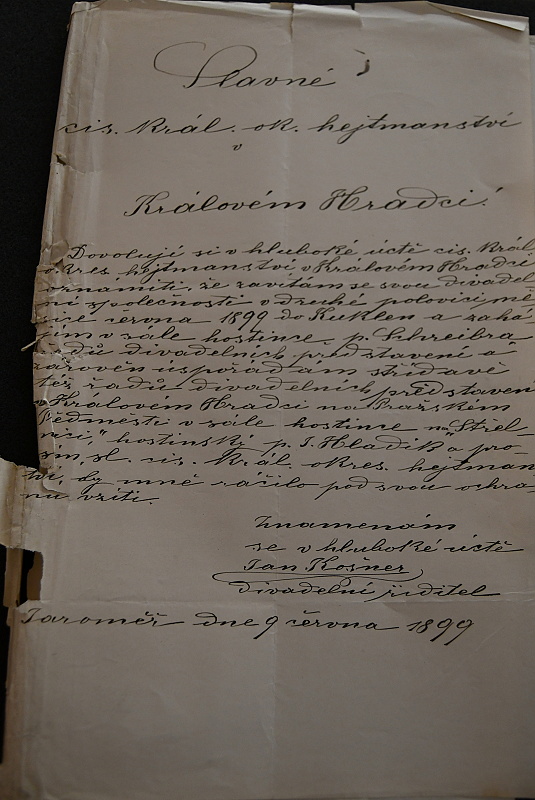 Slavné
cis. král. ok. hejtmanství
v
Královém Hradci!
Dovoluji si v hluboké úctě cis. král.
okres. hejtmanství v Královém Hradci
oznámiti, že zavítám se svou divadel-
ní společností v druhé polovici mě-
síce června 1899 do Kuklen a zahá-
jím v sále hostince p. Schreibra
řadu divadelních představení a
zároveň uspořádám střídavě
též řadu divadelních představení
v Královém Hradci na Pražském
Předmestí v sále hostince na „Střel-
nici," hostinský p. J. Hladík a pro-
sím sl. cis. král. okres. hejtman-
ství, by mně ráčilo pod svou ochra-
nu vzíti.
Znamenám
se v hluboké úctě
Jan Košner
divadelní ředitel
Jaroměř dne 9 června 1899